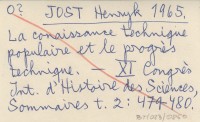 0? JOST Henryk 1965.
La connaissance technique
populaire et le progrès
technique. — XI Congrès
Int. d'Histoire des Sciences,
Sommaires t. 2: 479-480.